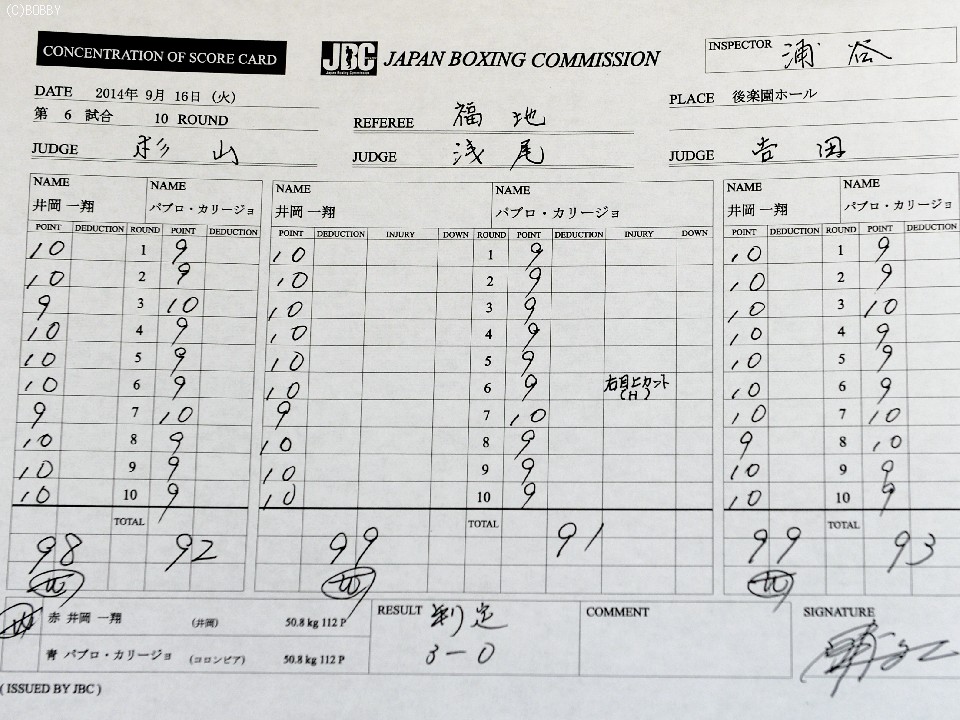 (C)BOBBY
CONCENTRATION OF SCORE CARD
JBC
Japan Boxing Commission
JAPAN BOXING COMMISSION
INSPECTOR 浦谷
DATE 2014年 9月 16日 (火)
PLACE 後楽園ホール
第 6 試合 10 ROUND
REFEREE 福地
JUDGE 杉山
JUDGE 浅尾
JUDGE 吉田
NAME NAME NAME NAME NAME NAME
井岡 一翔 パブロ・カリージョ 井岡 一翔 パブロ・カリージョ 井岡 一翔 パブロ・カリージョ
POINT DEDUCTION ROUND POINT DEDUCTION POINT DEDUCTION INJURY DOWN ROUND POINT DEDUCTION INJURY DOWN POINT DEDUCTION ROUND POINT DEDUCTION
10 1 9 10 1 9 10 1 9
10 2 9 10 2 9 10 2 9
9 3 10 10 3 9 10 3 10
10 4 9 10 4 9 10 4 9
10 5 9 10 5 9 10 5 9
10 6 9 10 6 9 右目上カット 10 6 9
(H)
9 7 10 9 7 10 10 7 10
10 8 9 10 8 9 9 8 10
10 9 9 10 9 9 10 9 9
10 10 9 10 10 9 10 10 9
TOTAL TOTAL TOTAL
98 92 99 91 99 93
W W W
W 赤 井岡 一翔 (井岡) 50.8 kg 112 P
RESULT 判定
3-0
COMMENT
SIGNATURE
青 パブロ・カリージョ (コロンビア) 50.8 kg 112 P
( ISSUED BY JBC )